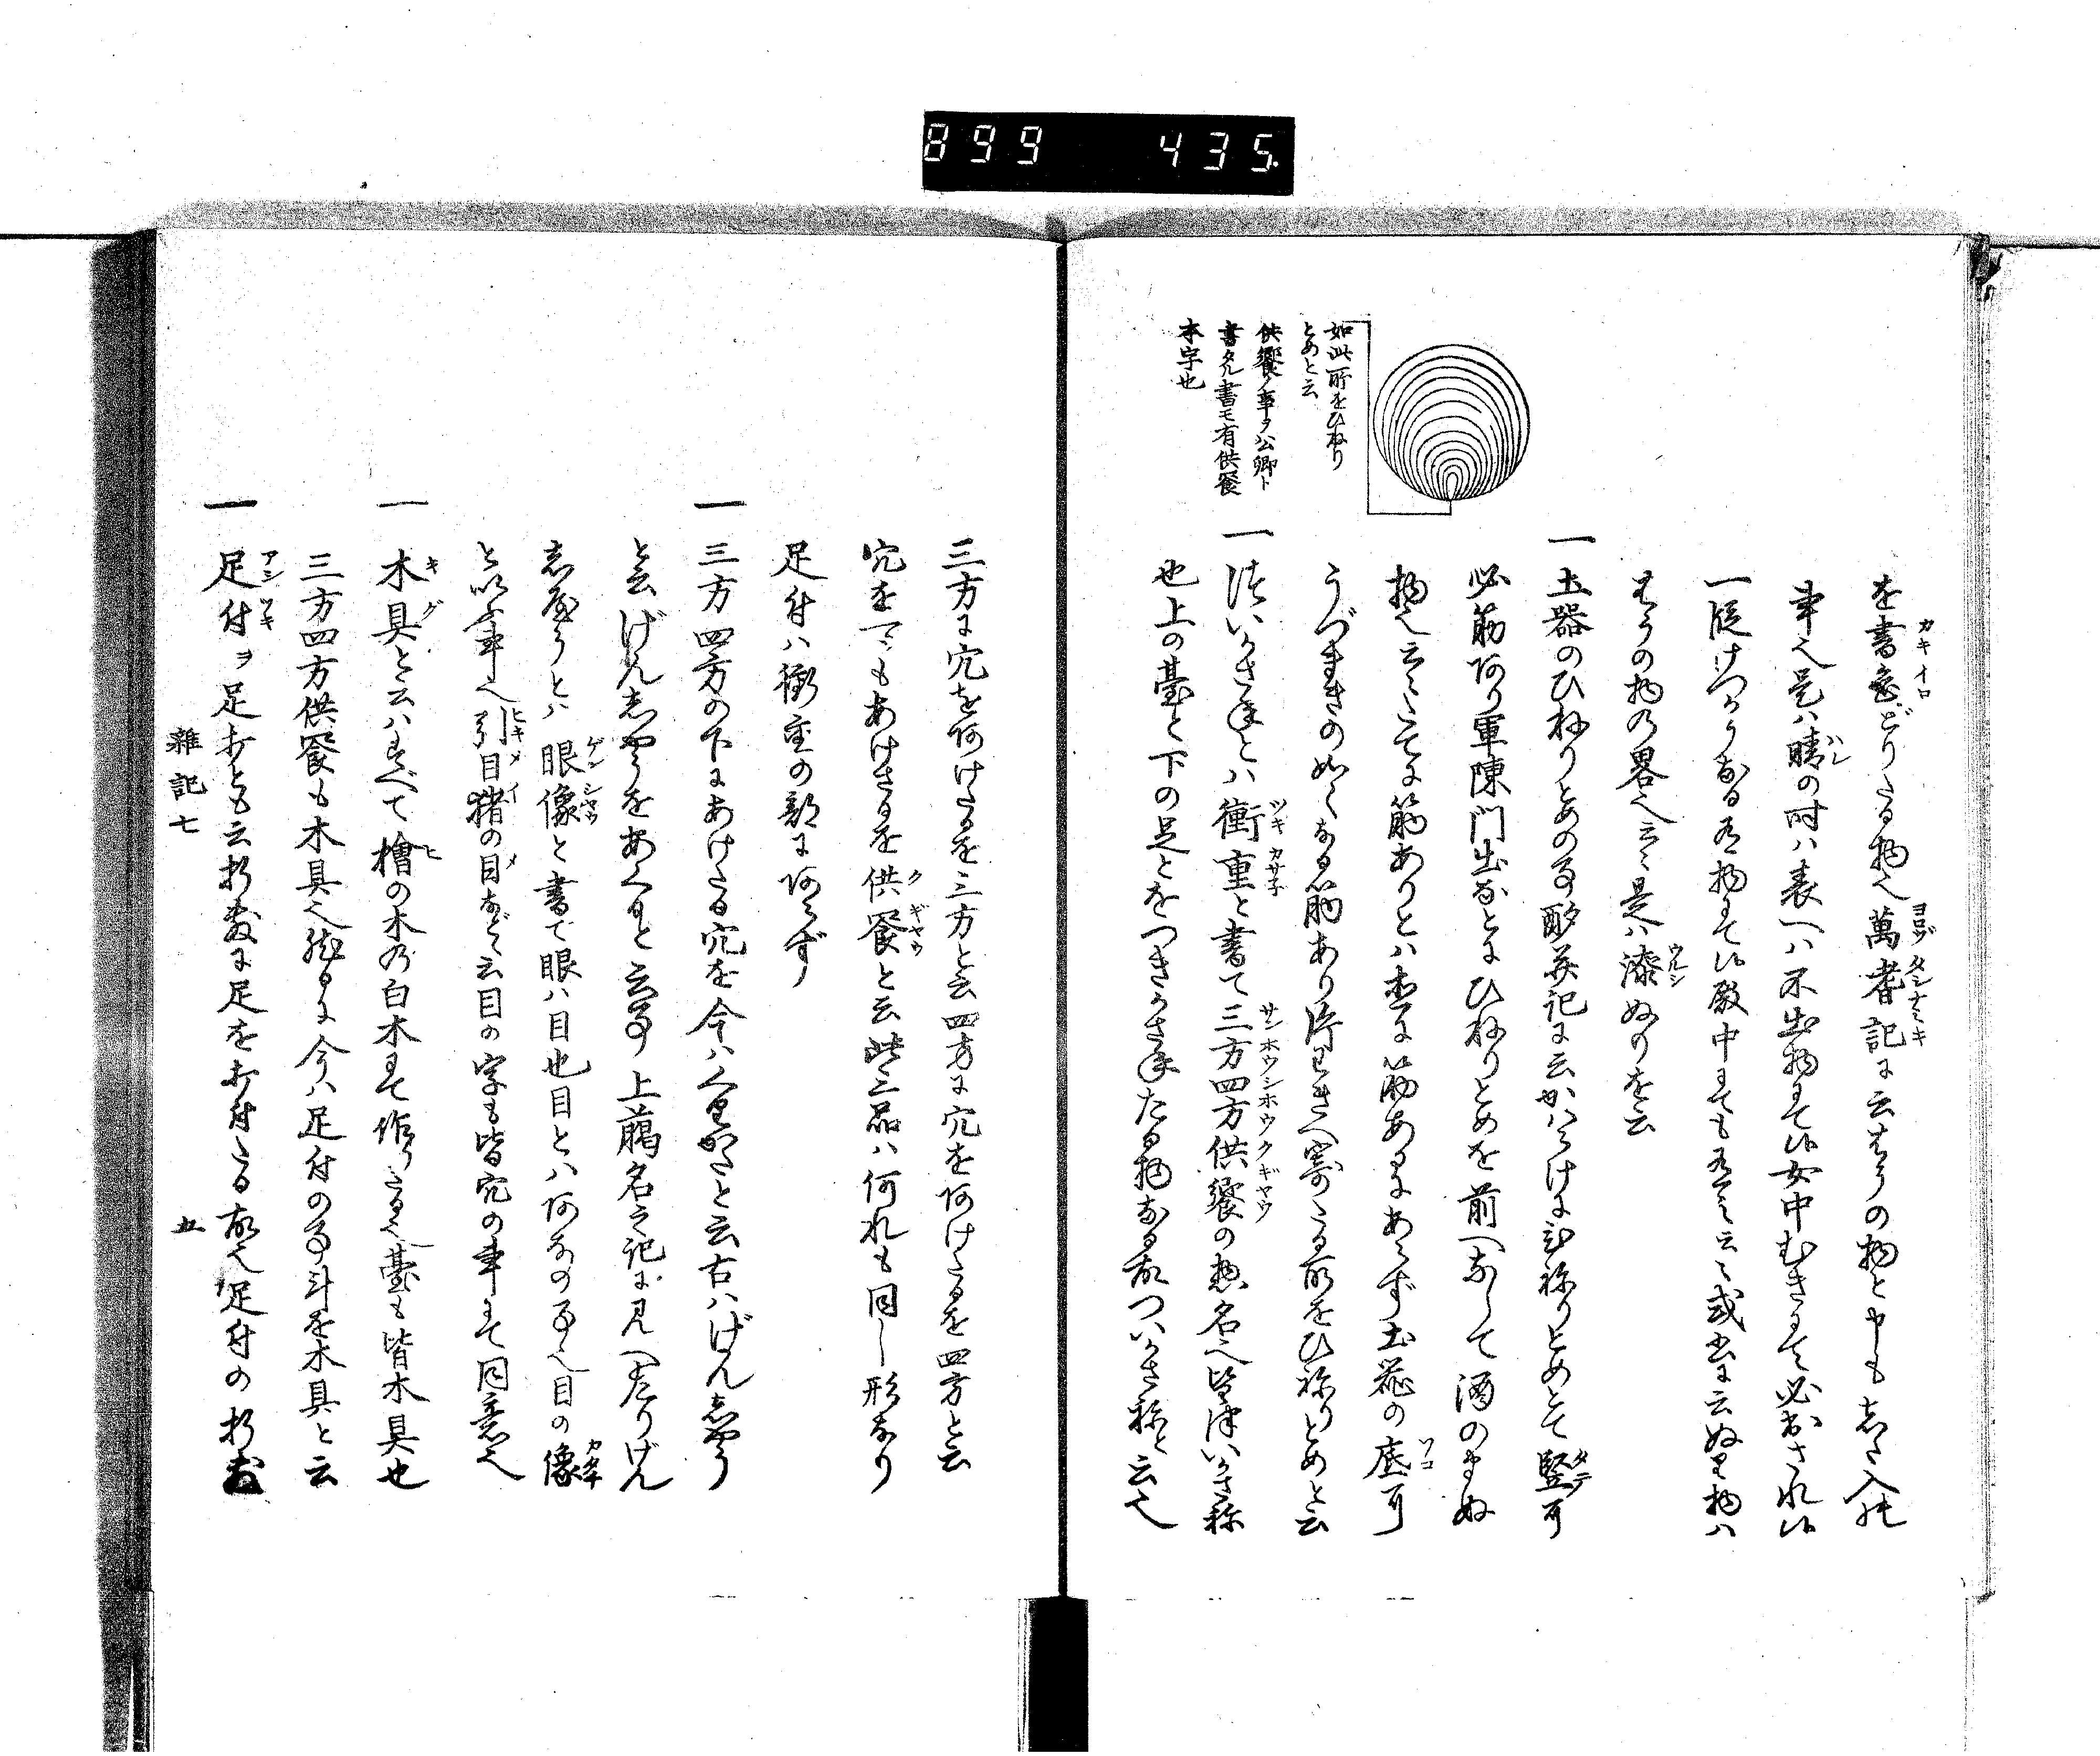 899 435
を書色どりたる物也萬嗜記に云むうの物と申も志と入れ
事也是ハ晴の時ハ表へハ不出物にて候女中むきにて必出され候
一段けつかうなる万物にて候殿中にても
むうの物の畧也云々是ハ漆ぬりを云
一土器のひねりとめの事酌并記に云かハらけにひねりとめとて竪可
必筋あり軍陳門出などにひねりとめを前へなして酒のまぬ
物也云々たてに筋ありとハ前に筋あるにあらず土器の底可
うづまきの如くなる筋あり片わきへ寄りたる所をひねりとめと云
如此所をひねり
とめと云
供饗ノ事ヲ公卿ト
書タル書モ有供饗
本字也
一ついかさねとハ衝重と書て三方四方供饗の惣名也皆ついかさね
也上の臺と下の足とをつきかさねたる物なる故ついかさねと云也
三方に穴をあけたるを三方と云四方に穴をあけたるを四方と云
穴を一ツもあけざるを供饗と云此三品ハ何れも同し形なり
足付ハ衝重の部にあらず
一三方四方の下にあけたる穴を今ハくりかたと云古ハげんしやう
と云げんしやうをあくると云事上臈名之記に見へたりげん
しやうとハ眼像と書て眼ハ目也目とハあなの事也目の像
と以事也引目猪の目などゝ云目の字も皆穴の事にて同意也
一木具と云ハすべて檜の木の白木にて作りたる也臺も皆木具也
三方四方供饗も木具也然るに今ハ足付の事斗を木具と云
一足付ヲ足打とも云折敷に足を打付たる故也足付の折敷
雑記七
五